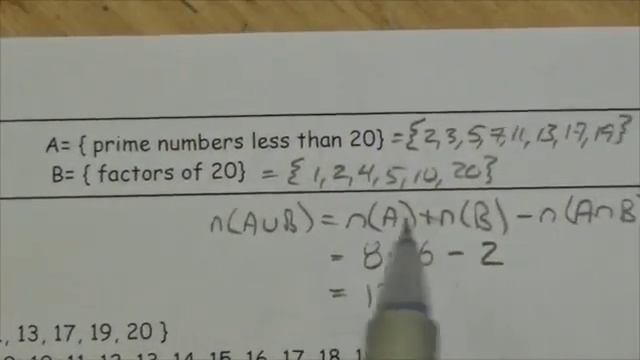 A= { prime numbers less than 20} = {2,3,5,7,11,13,17,19}
B= { factors of 20} = {1,2,4,5,10,20}
n(A∪B) = n(A)+n(B) - n(A∩B
= 8 6 - 2
= 1
, 13, 17, 19, 20 }
12, 13, 14, 15, 16, 17, 18